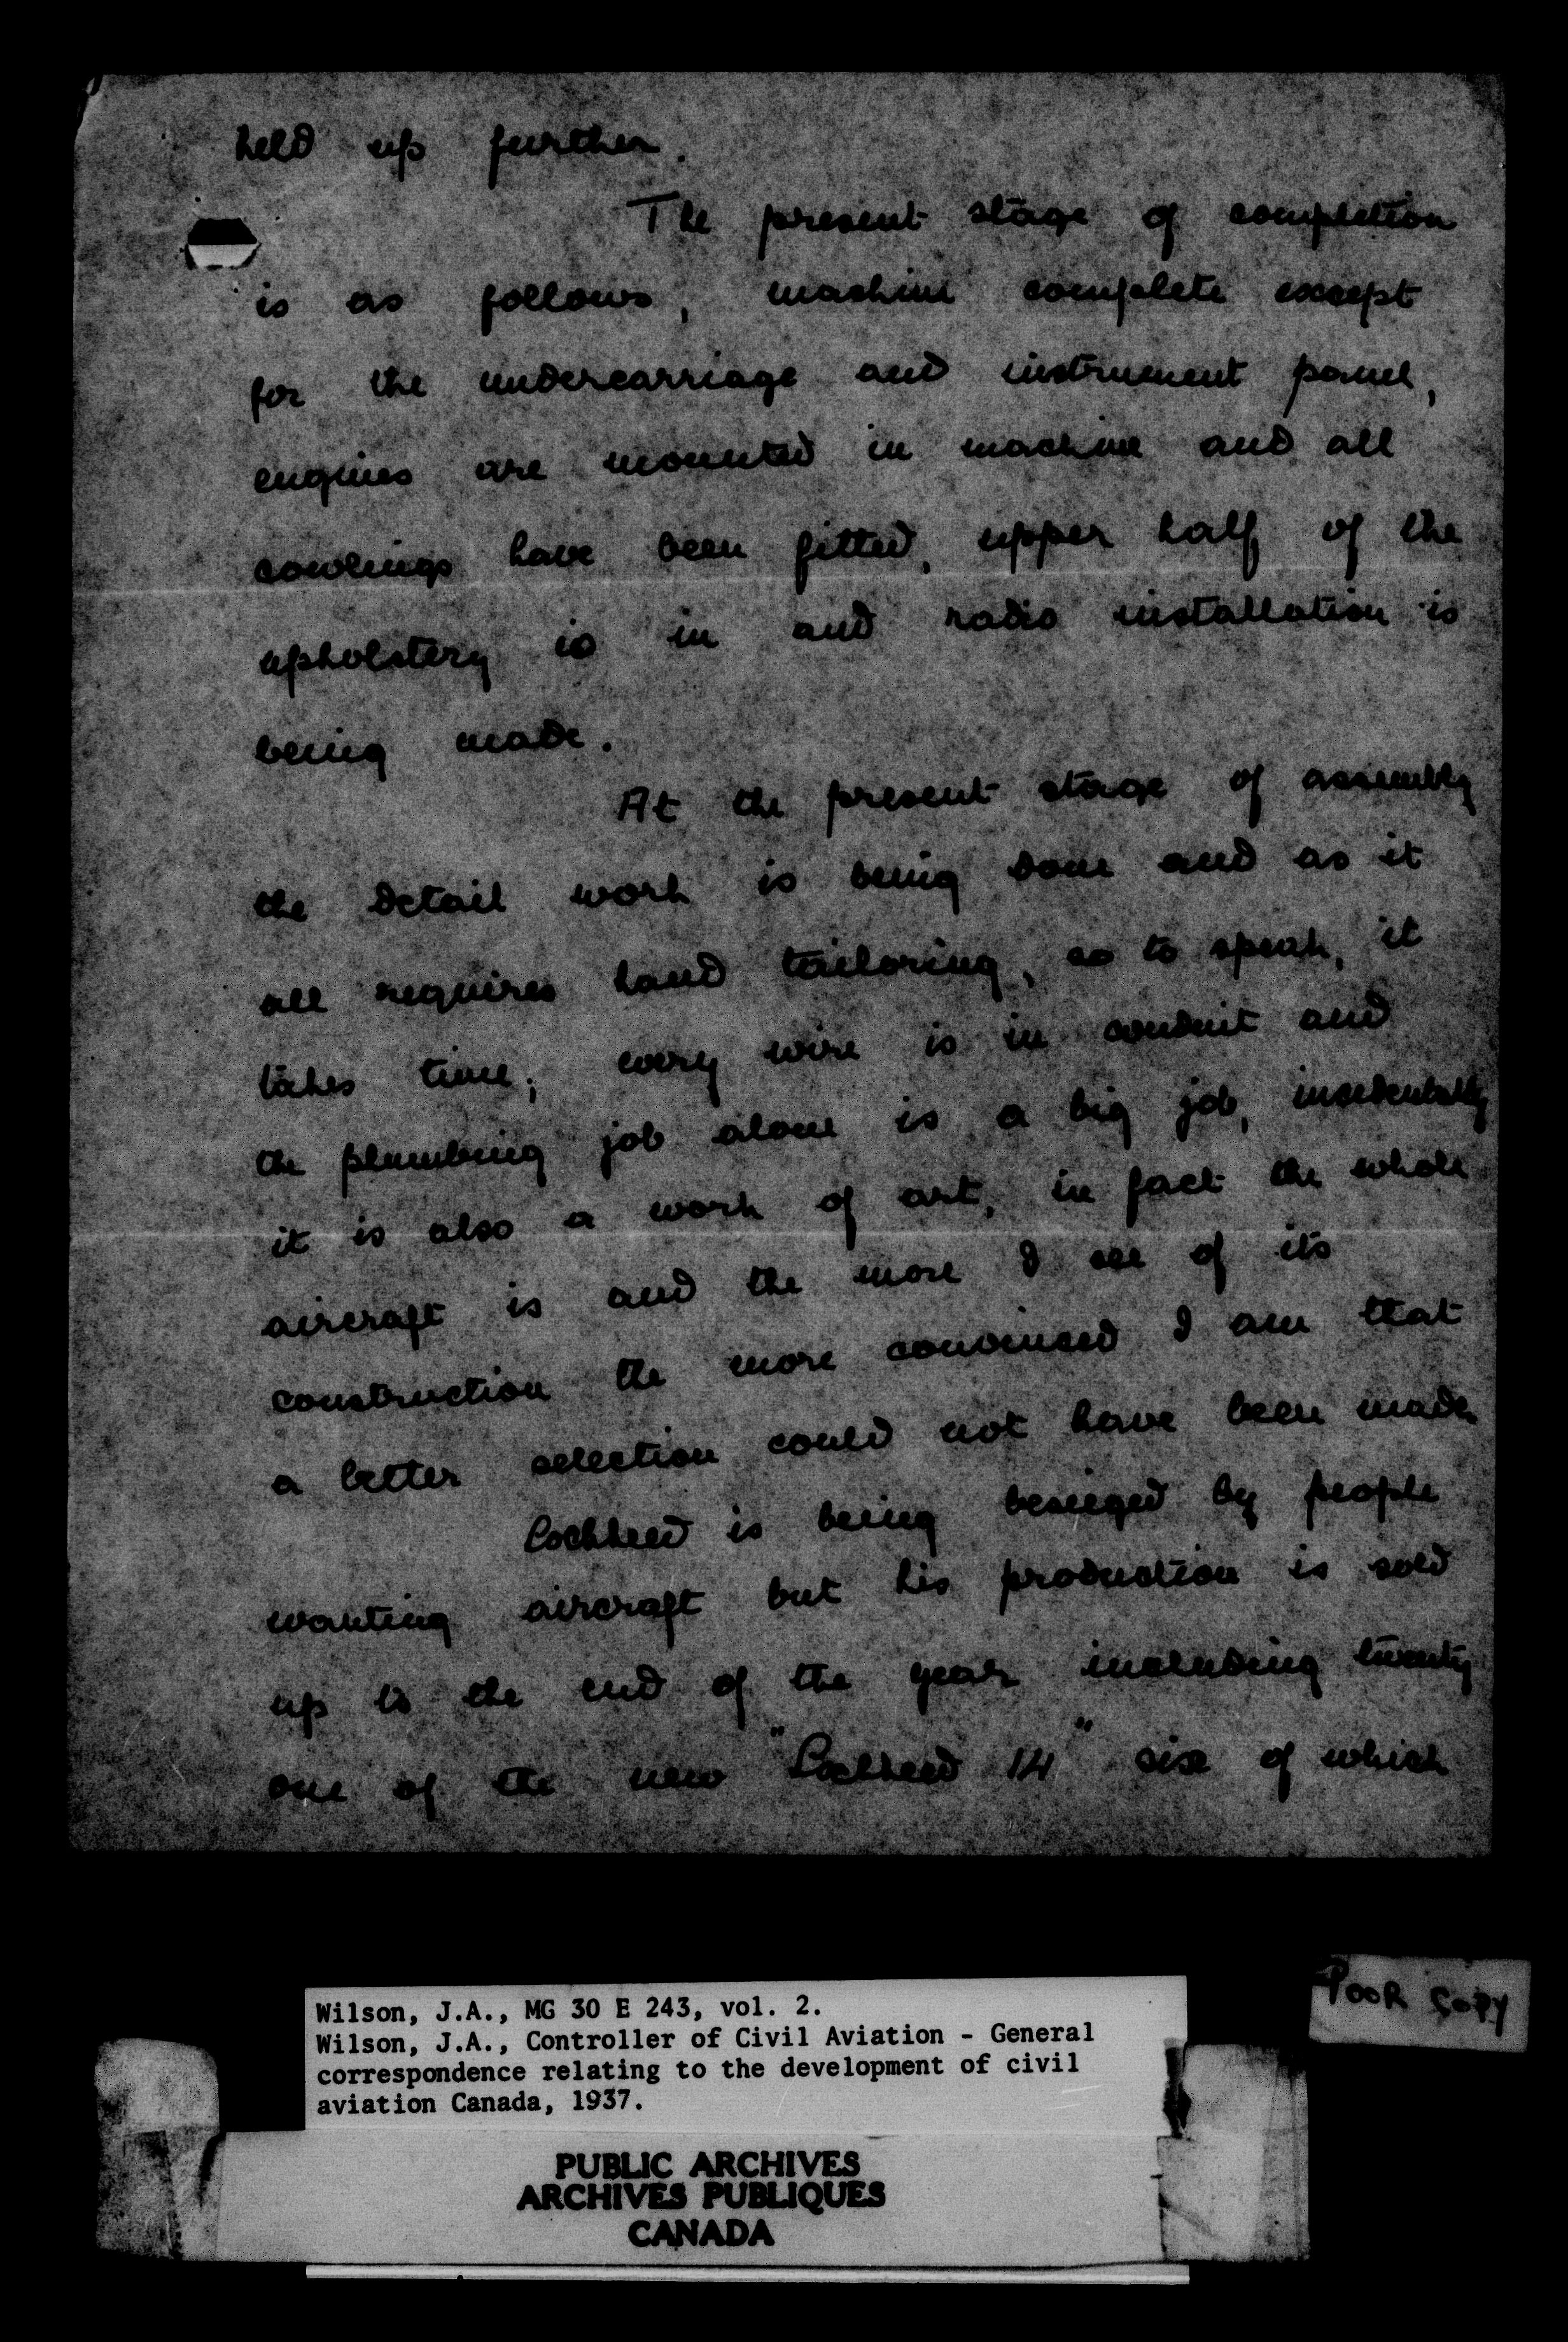 held up further.
The present stage of completion
is as follows, machine complete except
for the undercarriage and instrument panel,
engines are mounted in machine and all
cowlings have been fitted, upper half of the
upholstery is in and radio installation is
being made.
At the present stage of assembly
the detail work is being done and as it
all requires hand tailoring, so to speak, it
takes time; every wire is in conduit and
the plumbing job alone is a big job, incidentally
it is also a work of art, in fact the whole
aircraft is and the more I see of its
construction the more convinced I am that
a better selection could not have been made.
Lockheed is being besieged by people
wanting aircraft but his production is sold
up to the end of the year including twenty
one of the new "Lockheed 14" six of which
POOR COPY
Wilson, J.A., MG 30 E 243, vol. 2.
Wilson, J.A., Controller of Civil Aviation - General
correspondence relating to the development of civil
aviation Canada, 1937.
PUBLIC ARCHIVES
ARCHIVES PUBLIQUES
CANADA